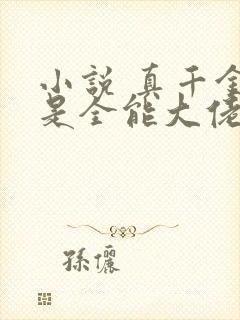 小說 真千金
是全能大佬
孫儷